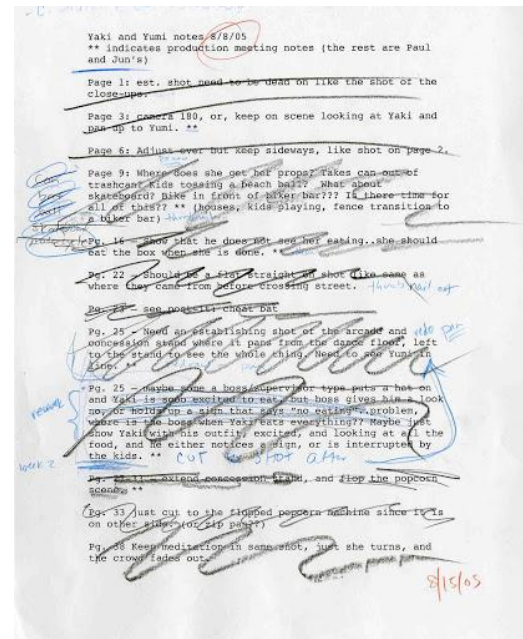 Yaki and Yumi notes 8/8/05
** indicates production meeting notes (the rest are Paul
and Jun's)
Page 1: est. shot need to be dead on like the shot of the
close-ups.
Page 3: camera 180, or, keep on scene looking at Yaki and
pan up to Yumi. **
Page 6: Adjust over but keep sideways, like shot on page 2.
Page 9: Where does she get her props? Takes can out of
trashcan? Kids tossing a beach ball? What about
skateboard? Bike in front of biker bar??? Is there time for
all of this?? ** (houses, kids playing, fence transition to
a biker bar)
Pg. 16 - Show that he does not see her eating..she should
eat the box when she is done. **
Pg. 22 - Should be a flat straight on shot like same as
where they came from before crossing street.
thumb nail out
see post-it: cheat bat
Pg. 25 - Need an establishing shot of the arcade and
concession stand where it pans from the dance floor, left
to the stand to see the whole thing. Need to see Yumi in
line. **
Pg. 25 - maybe some a boss/supervisor type puts a hat on
and Yaki is sooo excited to eat, but boss gives him a look
no, or holds up a sign that says "no eating"..problem,
where is the boss when Yaki eats everything?? Maybe just
show Yaki with his outfit, excited, and looking at all the
food, and he either notices a sign, or is interrupted by
the kids. ** cut to shot after
week 2
extend concession stand, and flop the popcorn
scene. **
Pg. 33 just cut to the flopped popcorn machine since it is
on other side. (or zip pan??)
Pg. 38 Keep meditation in same shot, just she turns, and
the crowd fades out.
8/15/05